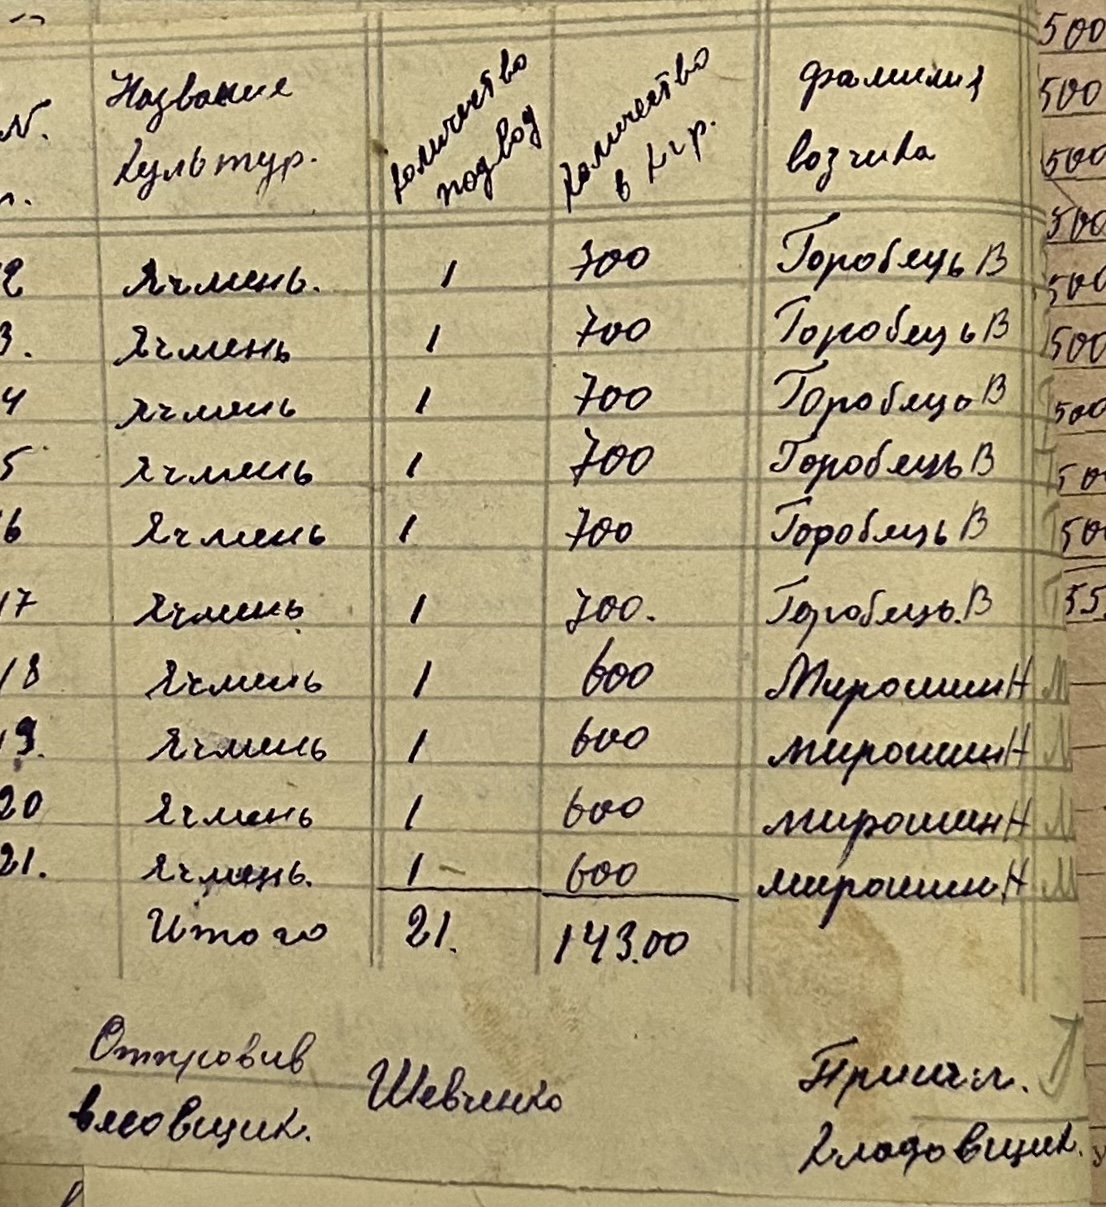 N. Название культур. количество подвод количество в кгр. фамилия возчика
2 Ячмень. 1 700 Горобець В
3. Ячмень 1 700 Горобець В
4 Ячмень 1 700 Горобець В
5 Ячмень 1 700 Горобець В
6 Ячмень 1 700 Горобець В
17 Ячмень 1 700. Горобець. В
18 Ячмень 1 600 Мирошин Н
19. Ячмень 1 600 мирошин Н
20 Ячмень 1 600 мирошин Н
21. Ячмень. 1 600 мирошин. Н
Итого 21. 143.00
Отправив Шевченко
весовщик.
Принял.
Кладовщик.
500
500
500
500
500
500
500
50
50
55